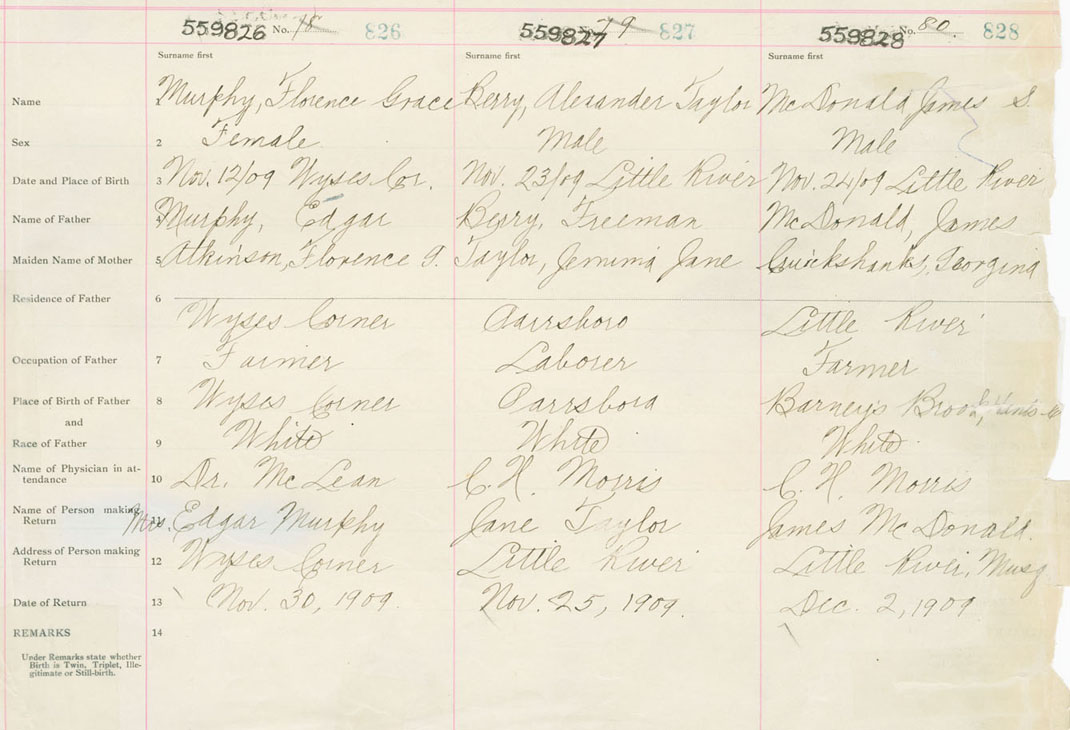 559826 No. 78 826 559827 79 827 559828 No. 80. 828
Surname first Surname first Surname first
Name 1 Murphy, Florence Grace Berry, Alexander Taylor McDonald, James S.
Sex 2 Female Male Male
Date and Place of Birth 3 Nov. 12/09 Wyses Cor. Nov. 23/09 Little River Nov. 24/09 Little River
Name of Father 4 Murphy, Edgar Berry, Freeman McDonald, James
Maiden Name of Mother 5 Atkinson, Florence G. Taylor, Jemima Jane Cruickshanks, Georgina
Residence of Father 6
Wyses Corner Parrsboro Little River
Occupation of Father 7 Farmer Laborer Farmer
Place of Birth of Father 8 Wyses Corner Parrsboro Barney's Brook,
and
Race of Father 9 White White White
Name of Physician in at-
tendance 10 Dr. McLean C. H. Morris C. H. Morris
Name of Person making
Return 11 Mrs. Edgar Murphy Jane Taylor James McDonald.
Address of Person making
Return 12 Wyses Corner Little River Little River, Musq
Date of Return 13 Nov. 30, 1909. Nov. 25, 1909. Dec. 2, 1909
REMARKS 14
Under Remarks state whether
Birth is Twin, Triplet, Ille-
gitimate or Still-birth.